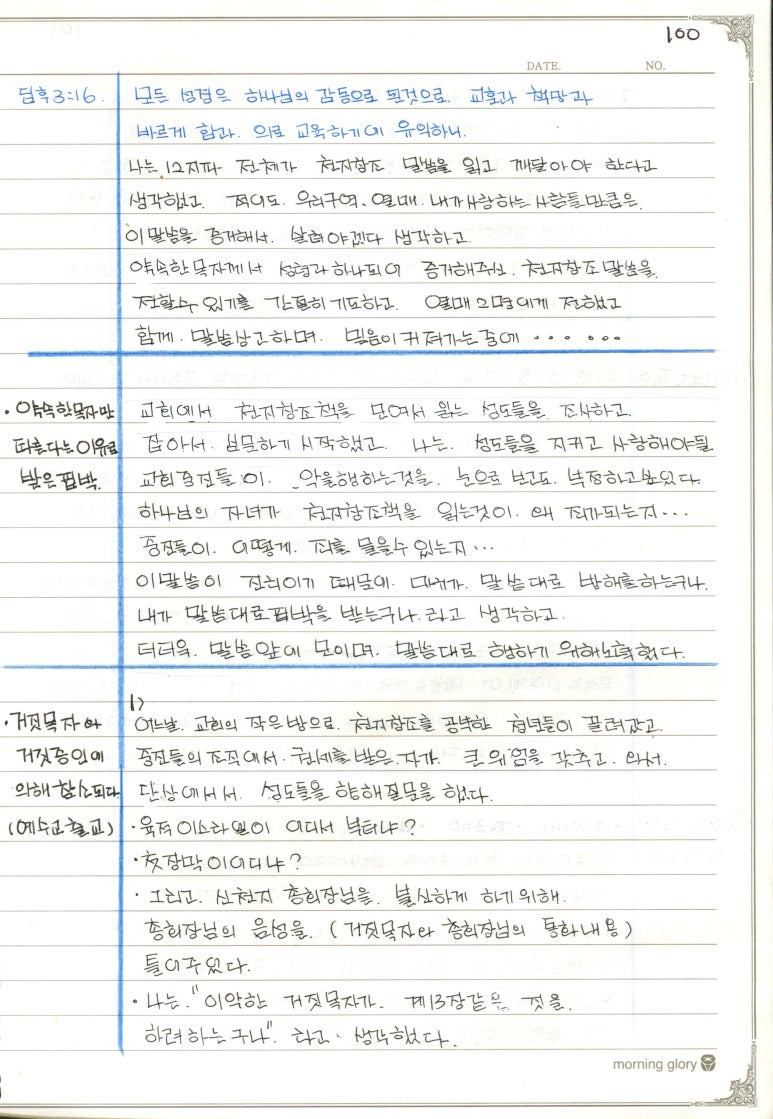 100
DATE. NO.
딤후3:16. 모든 성경은 하나님의 감동으로 된것으로. 교훈과 책망과
바르게 함과. 의로 교육하기에 유익하니.
나는 12지파 전체가 천지창조 말씀을 읽고 깨달아야 한다고
생각했고. 적어도 우리구역. 열매. 내가 사랑하는 사람들만큼은
이 말씀을 증거해서. 살려야겠다 생각하고.
약속한목자께서 성령과 하나되어 증거해주신. 천지창조 말씀을
전할수 있기를 간절히 기도하고. 열매 으명에게 전했고
함께. 말씀상고하며. 믿음이 커져가는 중에 ··· ···
· 약속한목자만 교회에서 천지창조책을 모여서 읽는 성도들을 조사하고.
따른다는 이유로 잡아서 심문하기 시작했고. 나는. 성도들을 지키고 사랑해야될
받은핍박. 교회중진들이. 악을행하는것을. 눈으로 보고도 부정하고싶었다.
하나님의 자녀가 천지창조책을 읽는것이. 왜 죄가되는지···
중진들이. 어떻게. 죄를 물을수 있는지···
이말씀이 진리이기 때문에. 대세가. 말씀대로 방해를하는구나.
내가 말씀대로핍박을 받는구나. 라고 생각하고.
더더욱. 말씀앞에 모이며. 말씀대로 행하기 위해노력했다.
1>
· 거짓목자와 어느날. 교회의 작은방으로. 천지창조를 공부한 청년들이 끌려갔고.
거짓증인에 중진들의 조직에서. 권세를 받은 자가. 큰 위엄을 갖추고. 와서.
의해 참소되다 단상에서서. 성도들을 향해질문을 했다.
(예수교출교) · 육적 이스라엘이 어디서 부터냐?
· 첫장막이어디냐?
· 그리고. 신천지 총회장님을. 불신하게 하기위해.
총회장님의 음성을. (거짓목자와 총회장님의 통화내용)
틀어주었다.
· 나는. "이악한 거짓목자가. 계13장같은 짓을.
하려하는구나". 라고. 생각했다.
morning glory